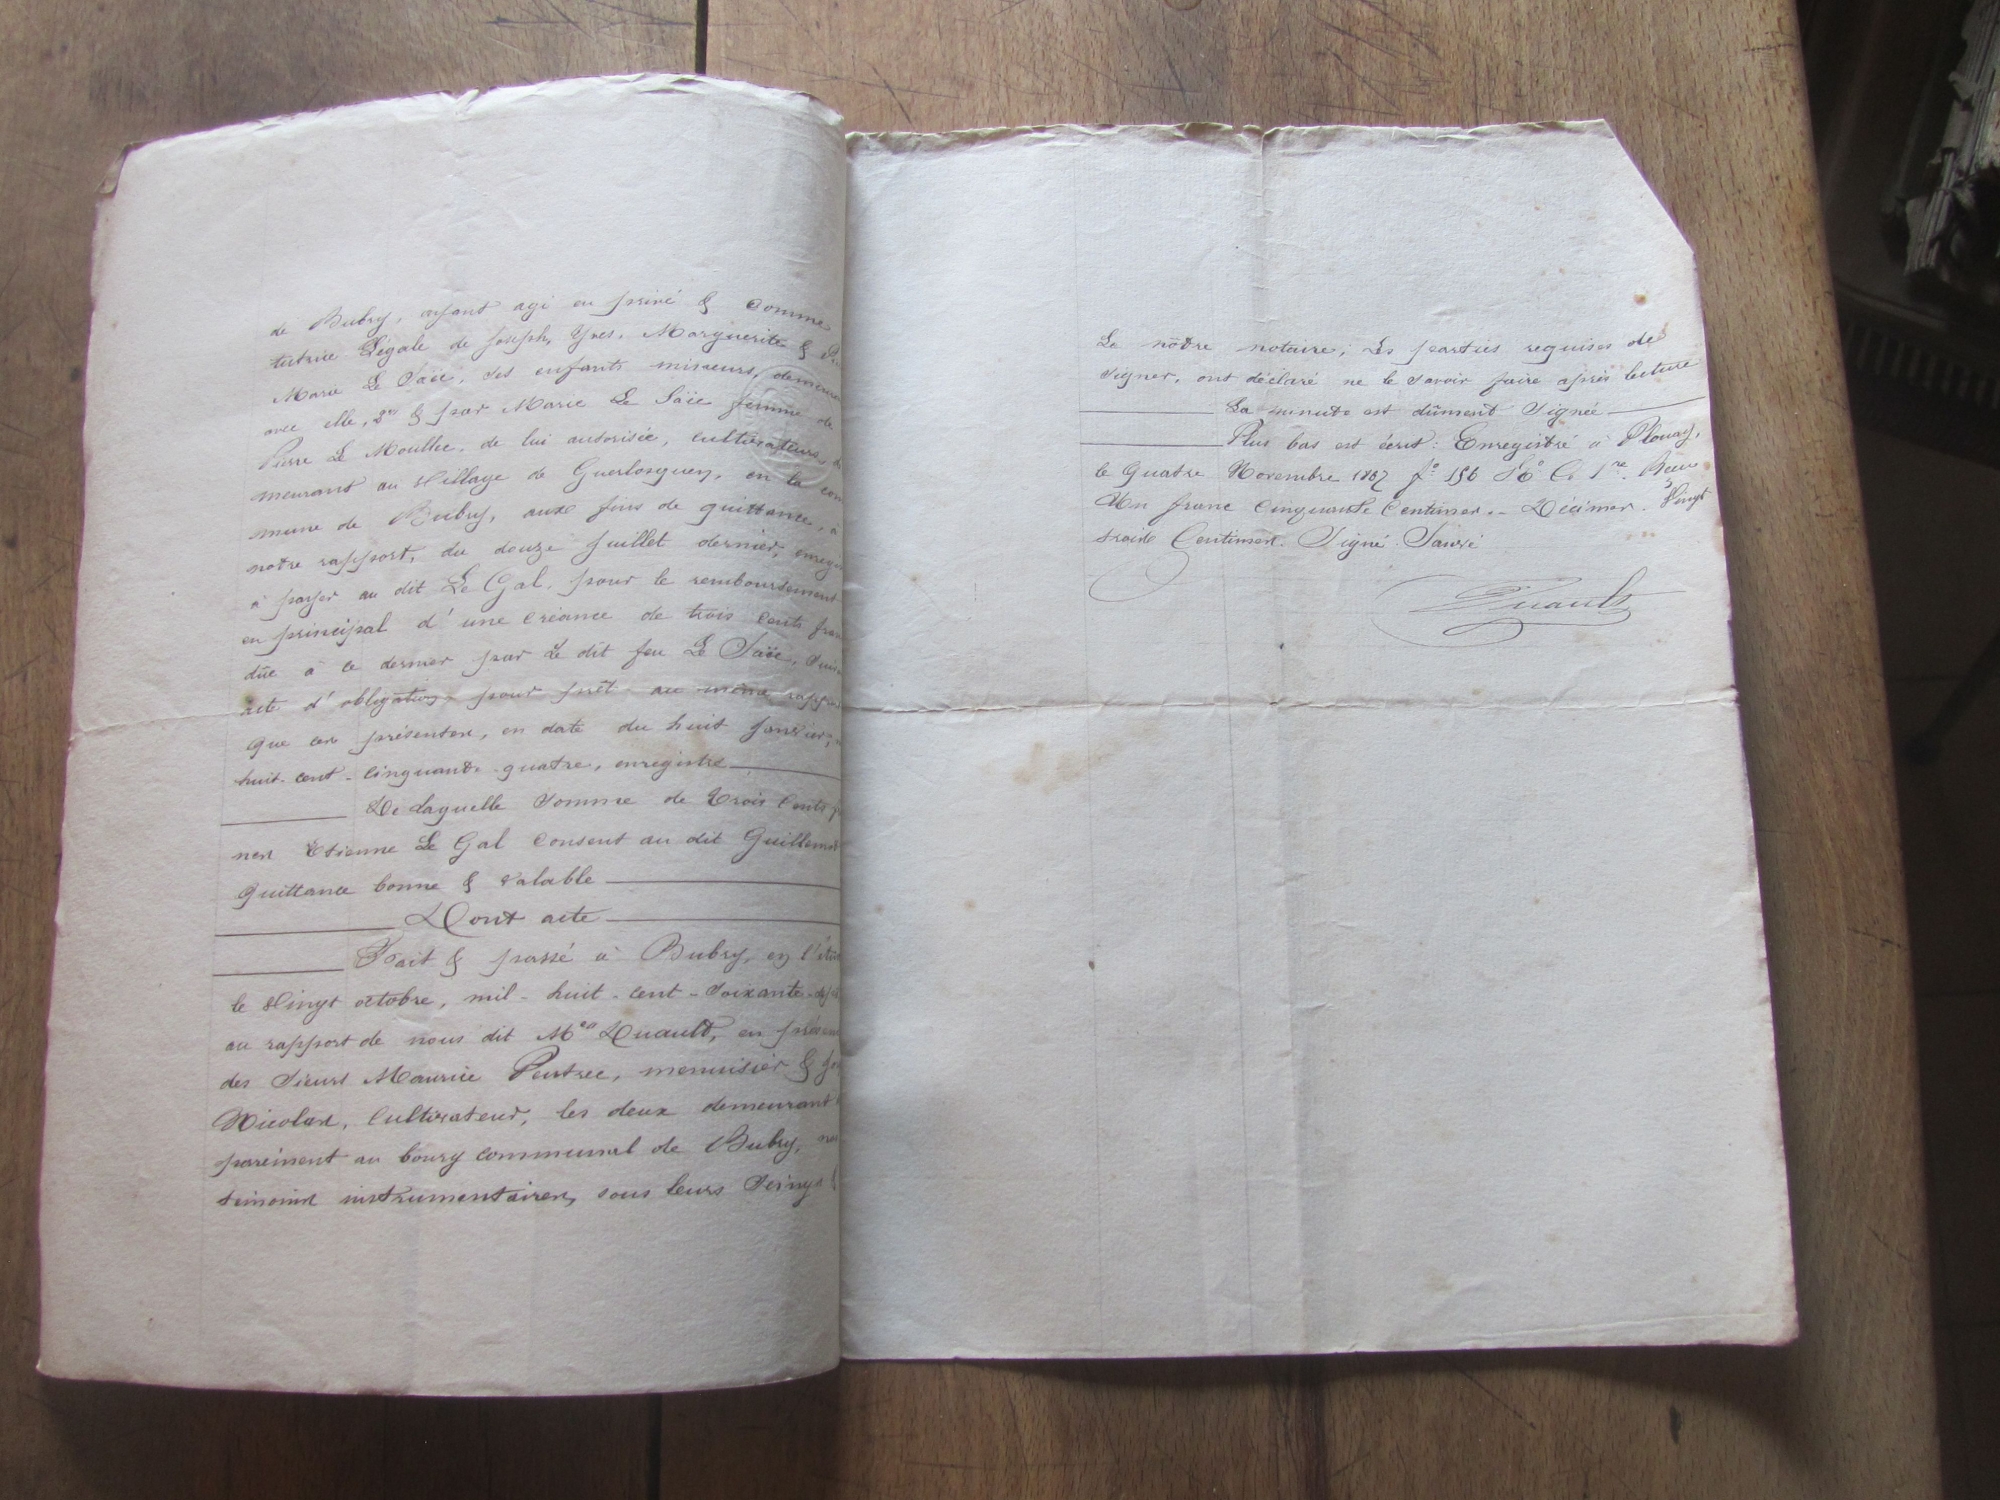 de Bubry, ayant agi en privé & comme
tutrice Légale de Joseph, Yves, Marguerite &
Marie Le Saëc, ses enfants mineurs,
avec elle, 2° & par Marie Le Saëc femme de
Pierre Le Moullec, de lui autorisée, cultivateurs,
meurant au village de Guerlosquen, en la com
mune de Bubry, aux fins de quittance, à
notre rapport, du douze Juillet dernier, enregis
à payer au dit Le Gal, pour le remboursement
en principal d'une créance de trois cents fran
dûe à ce dernier par le dit feu Le Saëc,
acte d'obligation pour prêt au même rapp
que ces présentes, en date du huit Janvier,
huit-cent-cinquante-quatre, enregistré
De laquelle somme de trois cents
nen Etienne Le Gal consent au dit Guillemo
quittance bonne & valable
Dont acte
Fait & passé à Bubry, en l'étu
le vingt octobre, mil-huit-cent-soixante-sept
au rapport de nous dit Me Quault, en présen
des sieurs Maurice Pentrec, menuisier &
Nicolas, cultivateur, les deux demeurant
parément au bourg communal de Bubry,
témoins instrumentaires, sous leurs seings
Le nôtre notaire; Les parties requises de
signer, ont déclaré ne le savoir faire après lecture
La minute est dûment signée
Plus bas est écrit: Enregistré à Plouay,
le quatre Novembre 1867 f° 156 R° C. 1re. Reçu
Un franc Cinquante Centimes. Décimes. Vingt
trois Centimes. Signé
Quault